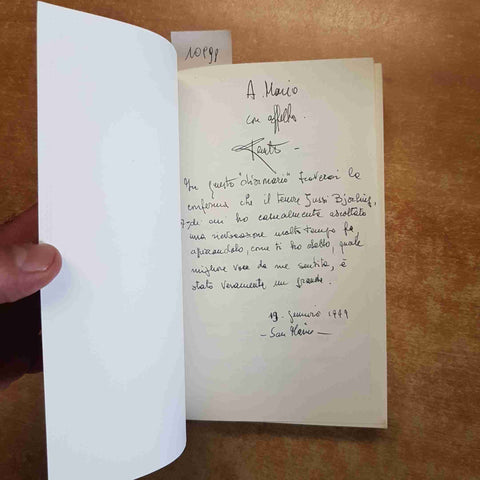 10998
A Mario
con affetto.
Renato -
In questo "dizionario" troverai la
conferma che il tenore Jussi Bjorling,
di cui ho casualmente ascoltato
una rievocazione molto tempo fa,
apprezzandolo, come ti ho detto, quale
migliore voce da me sentita, è
stato veramente un grande.
19. Gennaio 1999
- San Marino -